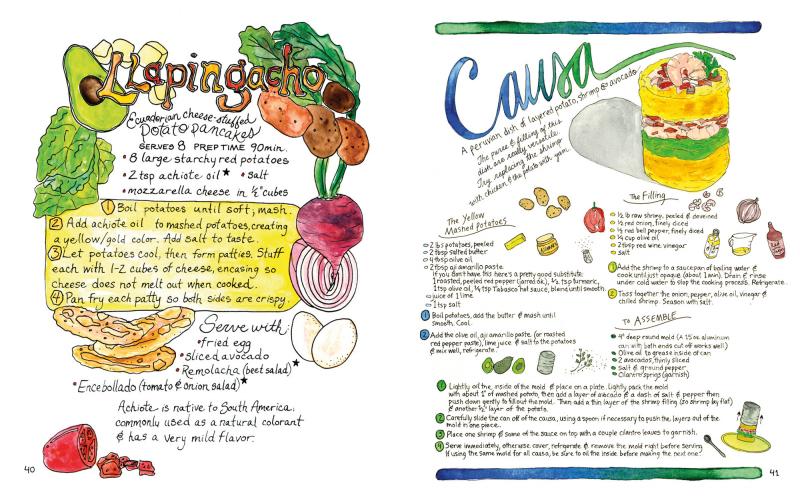 Llapingacho
Ecuadorian cheese-stuffed
potato pancakes
SERVES 8 PREP TIME 90min.
• 8 large starchy red potatoes
• 2 tsp achiote oil★ • salt
• mozzarella cheese in ½" cubes
① Boil potatoes until soft; mash.
② Add achiote oil to mashed potatoes, creating
a yellow/gold color. Add salt to taste.
③ Let potatoes cool, then form patties. Stuff
each with 1-2 cubes of cheese, encasing so
cheese does not melt out when cooked.
④ Pan fry each patty so both sides are crispy.
Serve with:
• fried egg
• sliced avocado
• Remolacha (beet salad)★
• Encebollado (tomato & onion salad)★
Achiote is native to South America,
commonly used as a natural colorant
& has a very mild flavor.
40
Causa
A peruvian dish of layered potato, shrimp & avocado.
The puree & filling of this
dish are really versatile.
Try replacing the shrimp
with chicken, & the potato with yam.
The Yellow
Mashed Potatoes
2 lbs potatoes, peeled
2 tbsp salted butter
olive oil
2 tbsp aji amarillo paste
If you don't have this here's a pretty good substitute:
1 roasted, red pepper (jarred ok), ½ tsp turmeric,
1 tsp olive oil, ¼ tsp Tabasco hot sauce, blend until smooth.
juice of 1 lime
1 tsp salt
① Boil potatoes, add the butter & mash until
smooth. Cool.
② Add the olive oil, aji amarillo paste (or roasted
red pepper paste), lime juice & salt to the potatoes
& mix well, refrigerate.
The Filling
½ lb raw shrimp, peeled & deveined
½ red onion, finely diced
½ red bell pepper, finely diced
¼ cup olive oil
2 tbsp red wine vinegar
Salt
① Add the shrimp to a saucepan of boiling water &
cook until just opaque (about 1 min). Drain & rinse
under cold water to stop the cooking process. Refrigerate.
② Toss together the onion, pepper, olive oil, vinegar &
chilled shrimp. Season with salt.
To ASSEMBLE
4" deep round mold (A 15 oz aluminum
can with both ends cut off works well)
Olive oil to grease inside of can
2 avocados, thinly sliced
Salt & ground pepper
Cilantro sprigs (garnish)
① Lightly oil the inside of the mold & place on a plate. Lightly pack the mold
with about 1" of mashed potato, then add a layer of avocado & a dash of salt & pepper then
push down gently to fill out the mold. Then add a thin layer of the shrimp filling (so shrimp lay flat)
& another ½" layer of the potato.
② Carefully slide the can off the causa, using a spoon if necessary to push the layers out of the
mold in one piece.
③ Place one shrimp & some of the sauce on top with a couple cilantro leaves to garnish.
④ Serve immediately, otherwise cover, refrigerate & remove the mold right before serving.
If using the same mold for all causa, be sure to oil the inside before making the next one.
41